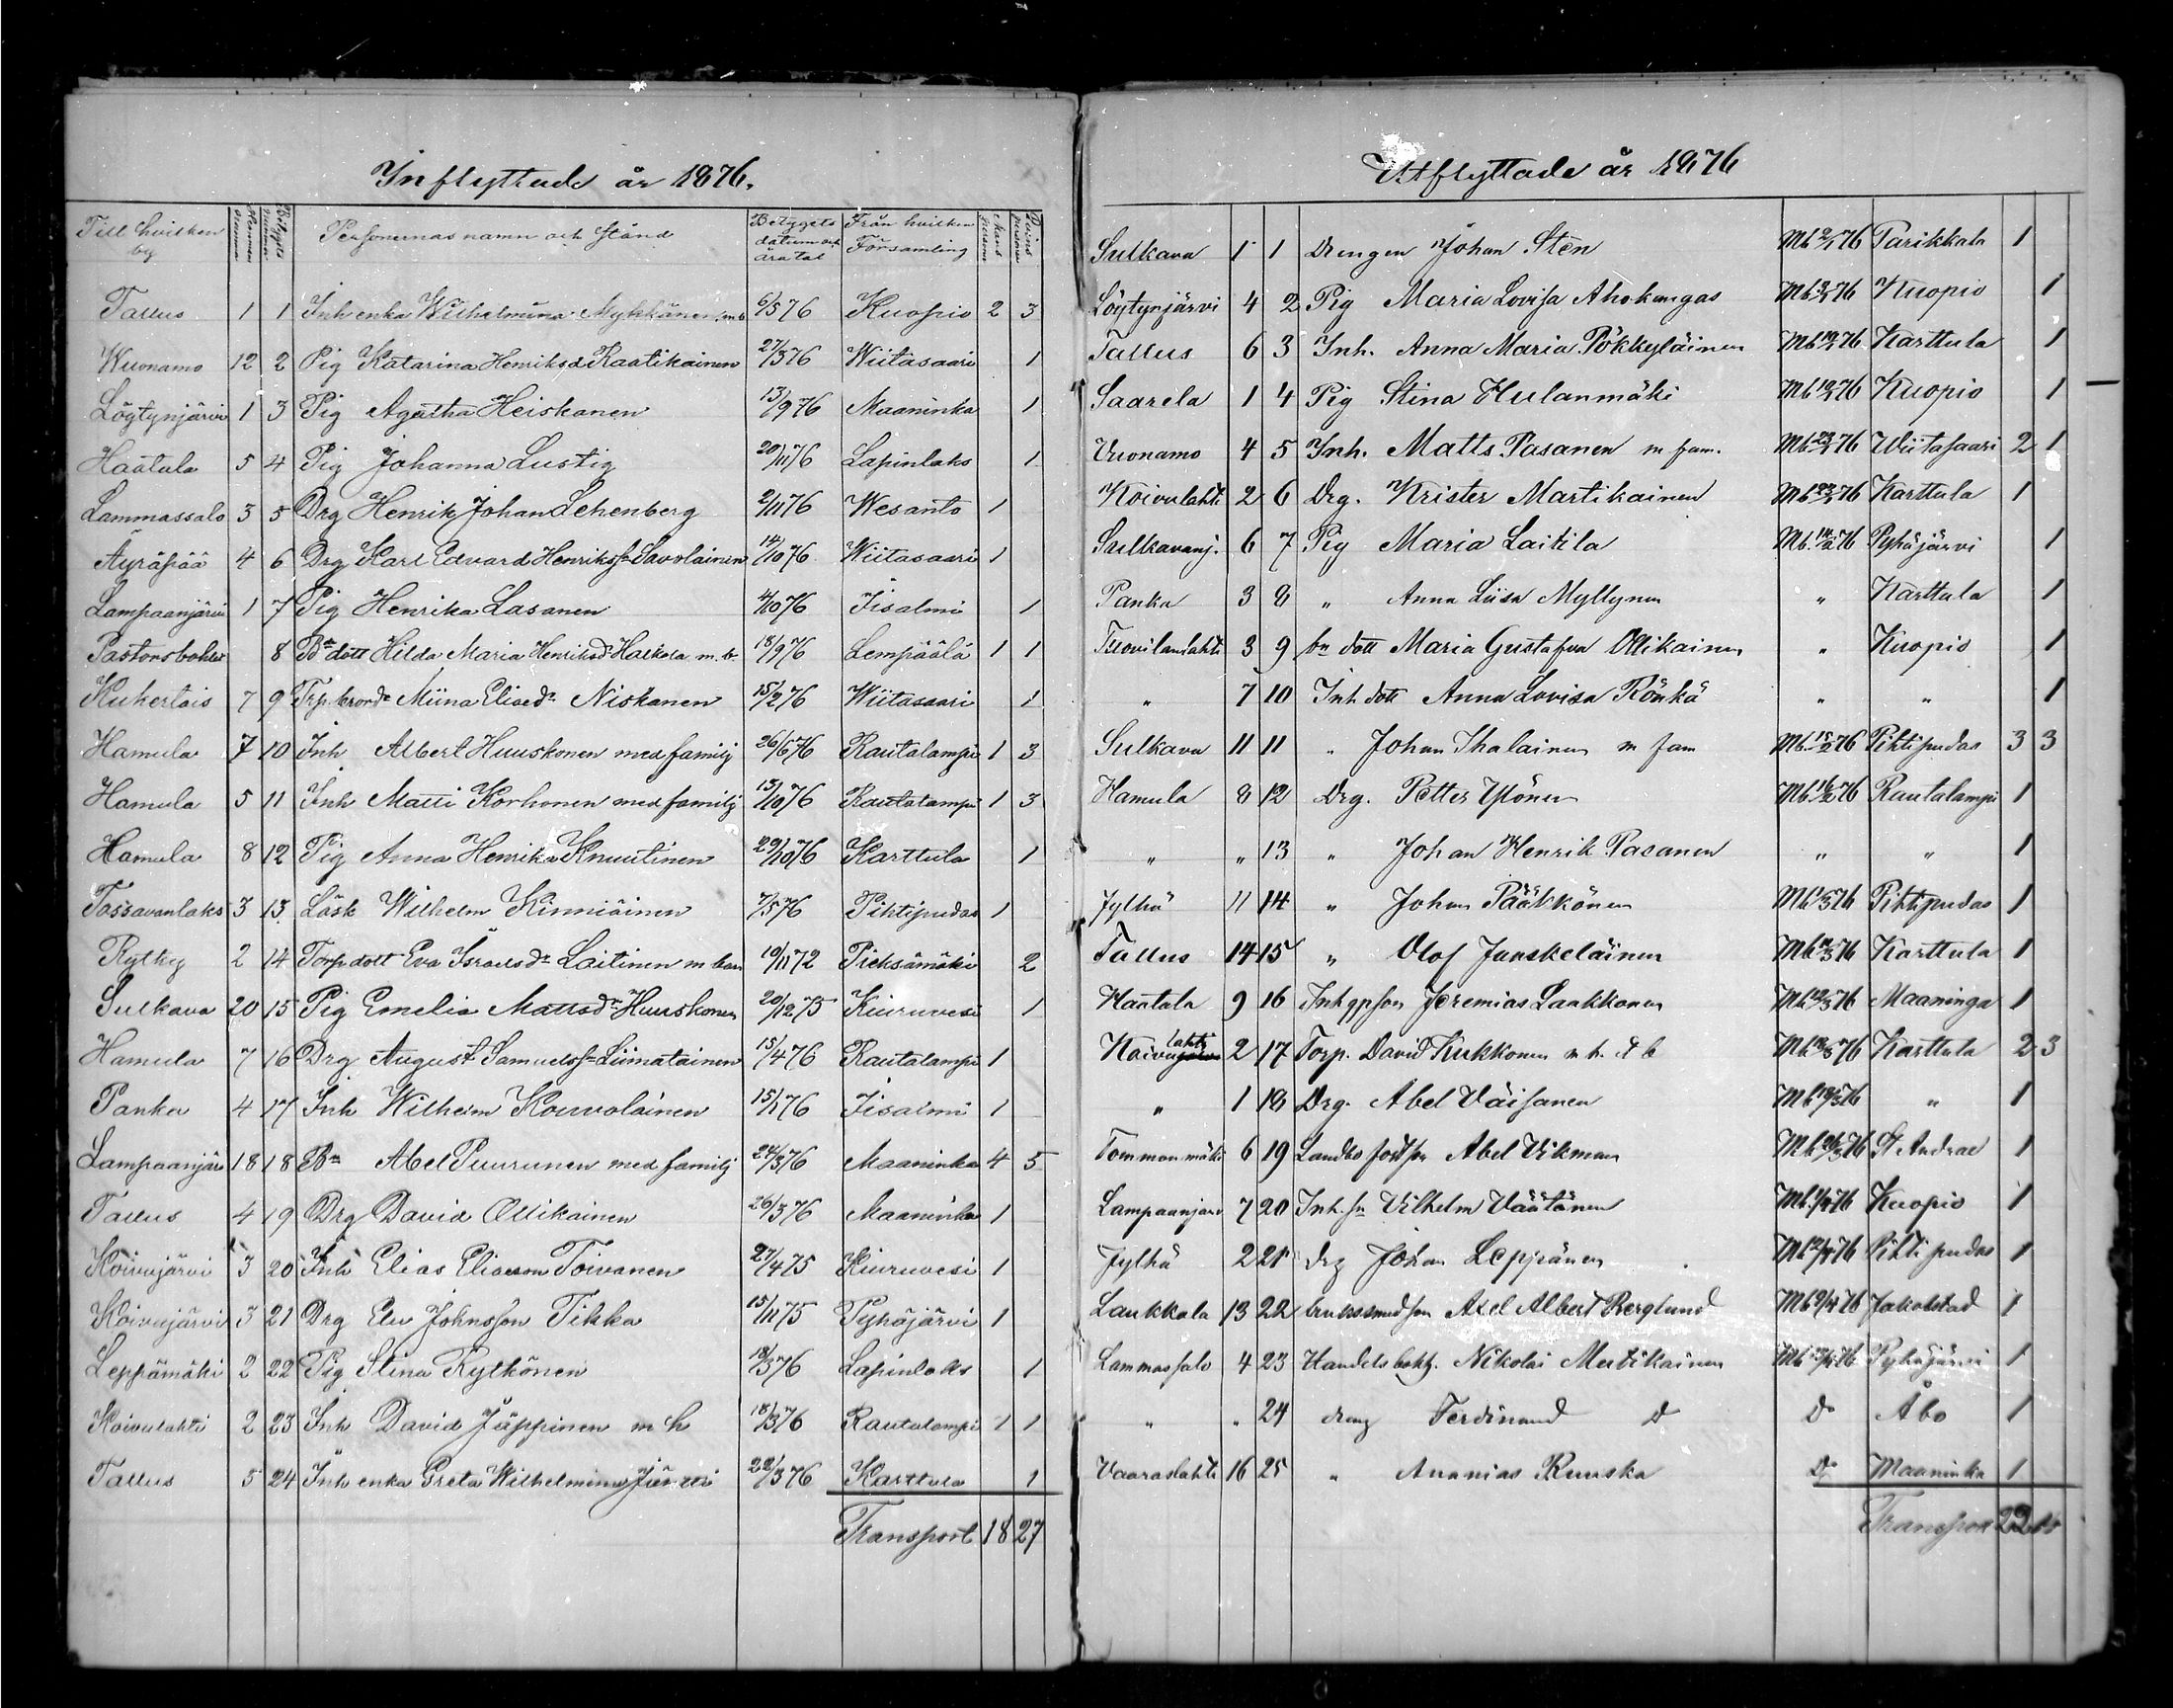 Inflyttade år 1876.
Till hvilken by Hemmans nummer Betygets nummer Personernas namn och stånd Betygets datum och åratal Från hvilken Församling Mans person Qvins person
Tallus 1 1 Inh enka Wilhelmina Mykkänen m b 6/5 76 Kuopio 2 3
Wuonamo 12 2 Pig Katarina Henriksd Raatikainen 27/3 76 Wiitasaari 1
Löytynjärvi 1 3 Pig Agatha Heiskanen 13/9 76 Maaninka 1
Haatala 5 4 Pig Johanna Lustig 20/11 76 Lapinlaks 1
Lammassalo 3 5 Drg Henrik Johan Lehenberg 2/11 76 Wesanto 1
Äyräpää 4 6 Drg Karl Edvard Henrikss Savolainen 14/10 76 Wiitasaari 1
Lampaanjärvi 1 7 Pig Henrika Lasanen 4/10 76 Iisalmi 1
Pastorsbohlet 8 Bn dott Hilda Maria Henriksd Halkola m. b. 18/9 76 Lempäälä 1 1
Kukertais 7 9 Trp Miina Elisedr Niskanen 15/2 76 Wiitasaari 1
Hamula 7 10 Inh Albert Huuskonen med familj 26/6 76 Rautalampi 1 3
Hamula 5 11 Inh Matti Korhonen med familj 15/10 76 Rautalampi 1 3
Hamula 8 12 Pig Anna Henrika Knuutinen 29/10 76 Karttula 1
Tossavanlaks 3 13 Lösk Wilhelm Kinniäinen 7/5 76 Pihtipudas 1
Rytky 2 14 Torp dott Eva Israelsdr Laitinen m barn 19/11 72 Pieksämäki 2
Sulkava 20 15 Pig Emelia Mattsdr Huuskonen 20/12 75 Kiuruvesi 1
Hamula 7 16 Drg August Samuelss Liimatainen 15/4 76 Rautalampi 1
Panka 4 17 Inh Wilhelm Kouvolainen 15/1 76 Iisalmi 1
Lampaanjärv 18 18 Bn Abel Puurunen med familj 24/3 76 Maaninka 4 5
Tallus 4 19 Drg David Ollikainen 26/3 76 Maaninka 1
Koivujärvi 3 20 Inh Elias Eliasson Toivanen 27/4 75 Kiuruvesi 1
Koivujärvi 3 21 Drg Elu Johnsson Tikka 15/11 75 Pyhäjärvi 1
Leppämäki 2 22 Pig Stina Rytkönen 18/3 76 Lapinlaks 1
Koivulahti 2 23 Inh David Jäppinen m h 18/3 76 Rautalampi 1 1
Tallus 5 24 Inh enka Greta Wilhelmina Jäntti 22/3 76 Karttula 1
Transport 18 27
Utflyttade år 1876
Sulkava 1 1 Drengen Johan Stén Mb 2/1 76 Parikkala 1
Löytynjärvi 4 2 Pig Maria Lovisa Ahokangas Mb 76 Kuopio 1
Tallus 6 3 Inh. Anna Maria Pökkyläinen Mb 76 Karttula 1
Saarela 1 4 Pig Stina Hulanmäki Mb 76 Kuopio 1
Vuonamo 4 5 Inh. Matts Pasanen m fam. Mb 76 Wiitasaari 2 1
Koivulahti 2 6 Drg. Krister Martikainen Mb 76 Karttula 1
Sulkavanj. 6 7 Pig Maria Laitila Mb. 76 Pyhäjärvi 1
Panka 3 8 " Anna Liisa Myllynen " Karttula 1
Tuovilanlahti 3 9 bn dott Maria Gustafva Ollikainen " Kuopio 1
" 7 10 Inh dott Anna Lovisa Rönkä " " 1
Sulkava 11 11 " Johan Ihalainen m fam Mb. 15/2 76 Pihtipudas 3 3
Hamula 8 12 Drg. Petter Ylönen Mb. 76 Rautalampi 1
" " 13 " Johan Henrik Pasanen " " 1
Jylhä 11 14 " Johan Pääkkönen Mb 1/3 76 Pihtipudas 1
Tallus 14 15 " Olof Junskeläinen Mb 76 Karttula 1
Haatala 9 16 Inh Jeremias Laakkonen Mb 76 Maaninga 1
Koivulahti 2 17 Torp. David Kukkonen m h. & b Mb 76 Karttula 2 3
" 1 18 Drg. Abel Väisänen Mb 19/3 76 " 1
Tommonmäki 6 19 Landbo Abel Vikman Mb 26/3 76 St Andrae 1
Lampaanjärv 7 20 Inh. sn Vilhelm Väätänen Mb 1/4 76 Kuopio 1
Jylhä 2 21 drg Johan Leppänen Mb 2/4 76 Pihtipudas 1
Laukkala 13 22 brukssmedson Axel Albert Berglund Mb 9/4 76 Jakobstad 1
Lammassalo 4 23 Handelsbokh. Nikolai Mertikainen Mb 76 Pyhäjärvi 1
" " 24 dreng Ferdinand d Do Åbo 1
Vaaraslahti 16 25 " Ananias Ruuska Do Maaninka 1
Transport 22